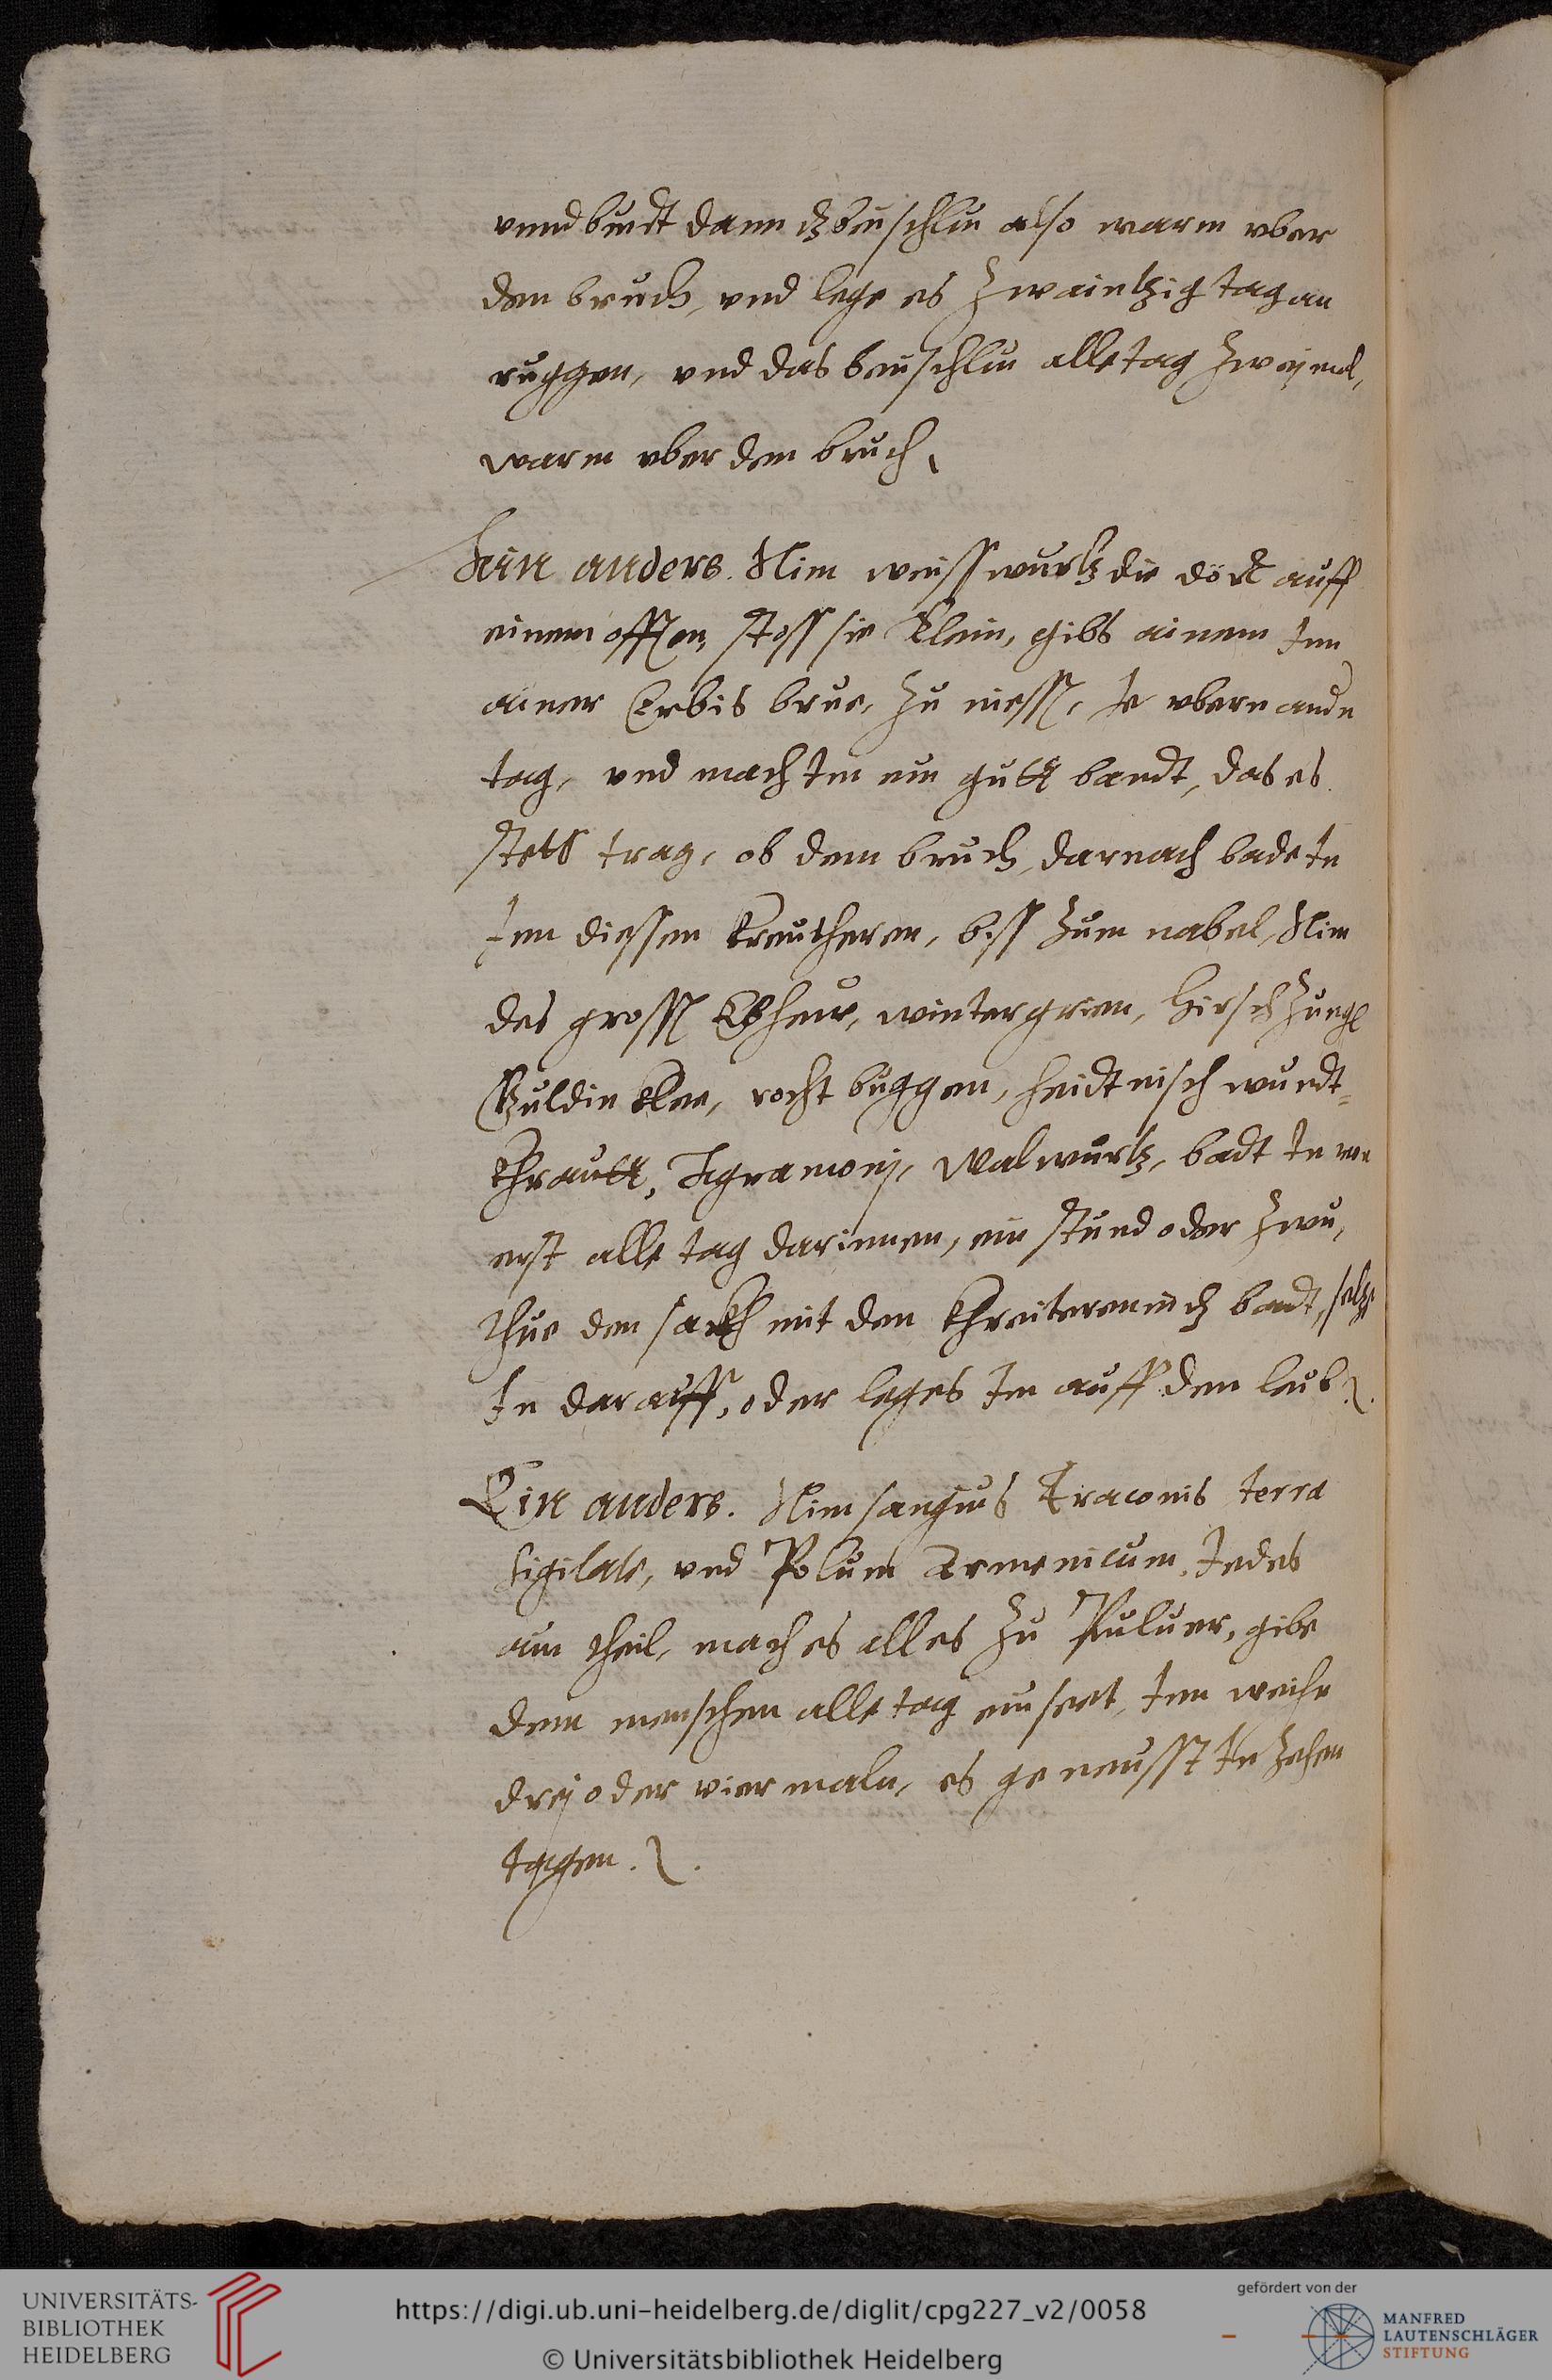 vnnd bindt dann dz beuschlin also warm vber
den bruch, vnd lege es zwaintzig tag an
ruggen, vnd das beuschlin alle tag zwÿmal,
warm vber dem bruch,
Ain anders. Nim weisswurtz die dört auff
einem offen, stoss sie klein, gibs ainem Inn
ainer Erbis brue, zu niessen, Je vbern andn
tag, vnd mach Im ein gutt bandt, das es
stets trag, ob dem bruch, darnach bade In
Inn diessen kreutheren, biss zum nabel, Nim
des gross, wintergrien, Hirschzungl
Guldin klee, rocht buggen, heidtnisch wundt=
khrautt, Agramonj, Walwurtz, badt In
erst alle tag darinnen, ein stund oder zwu,
thue den sackh mit den khreiteren in dz badt, setze
In darauff, oder leges Im auff den leib
Ein anders. Nim sangius Traconis terra
sigilate, vnd Polum Armenicum, Jedes
ain theil, mach es alles zu Puluer, gibe
dem menschen alle tag einsert, Inn weihe
dreÿ oder vier maln, es geneusst In zehen
tagen.
UNIVERSITÄTS-
BIBLIOTHEK
HEIDELBERG
https://digi.ub.uni-heidelberg.de/diglit/cpg227_v2/0058
© Universitätsbibliothek Heidelberg
gefördert von der
MANFRED
LAUTENSCHLÄGER
STIFTUNG